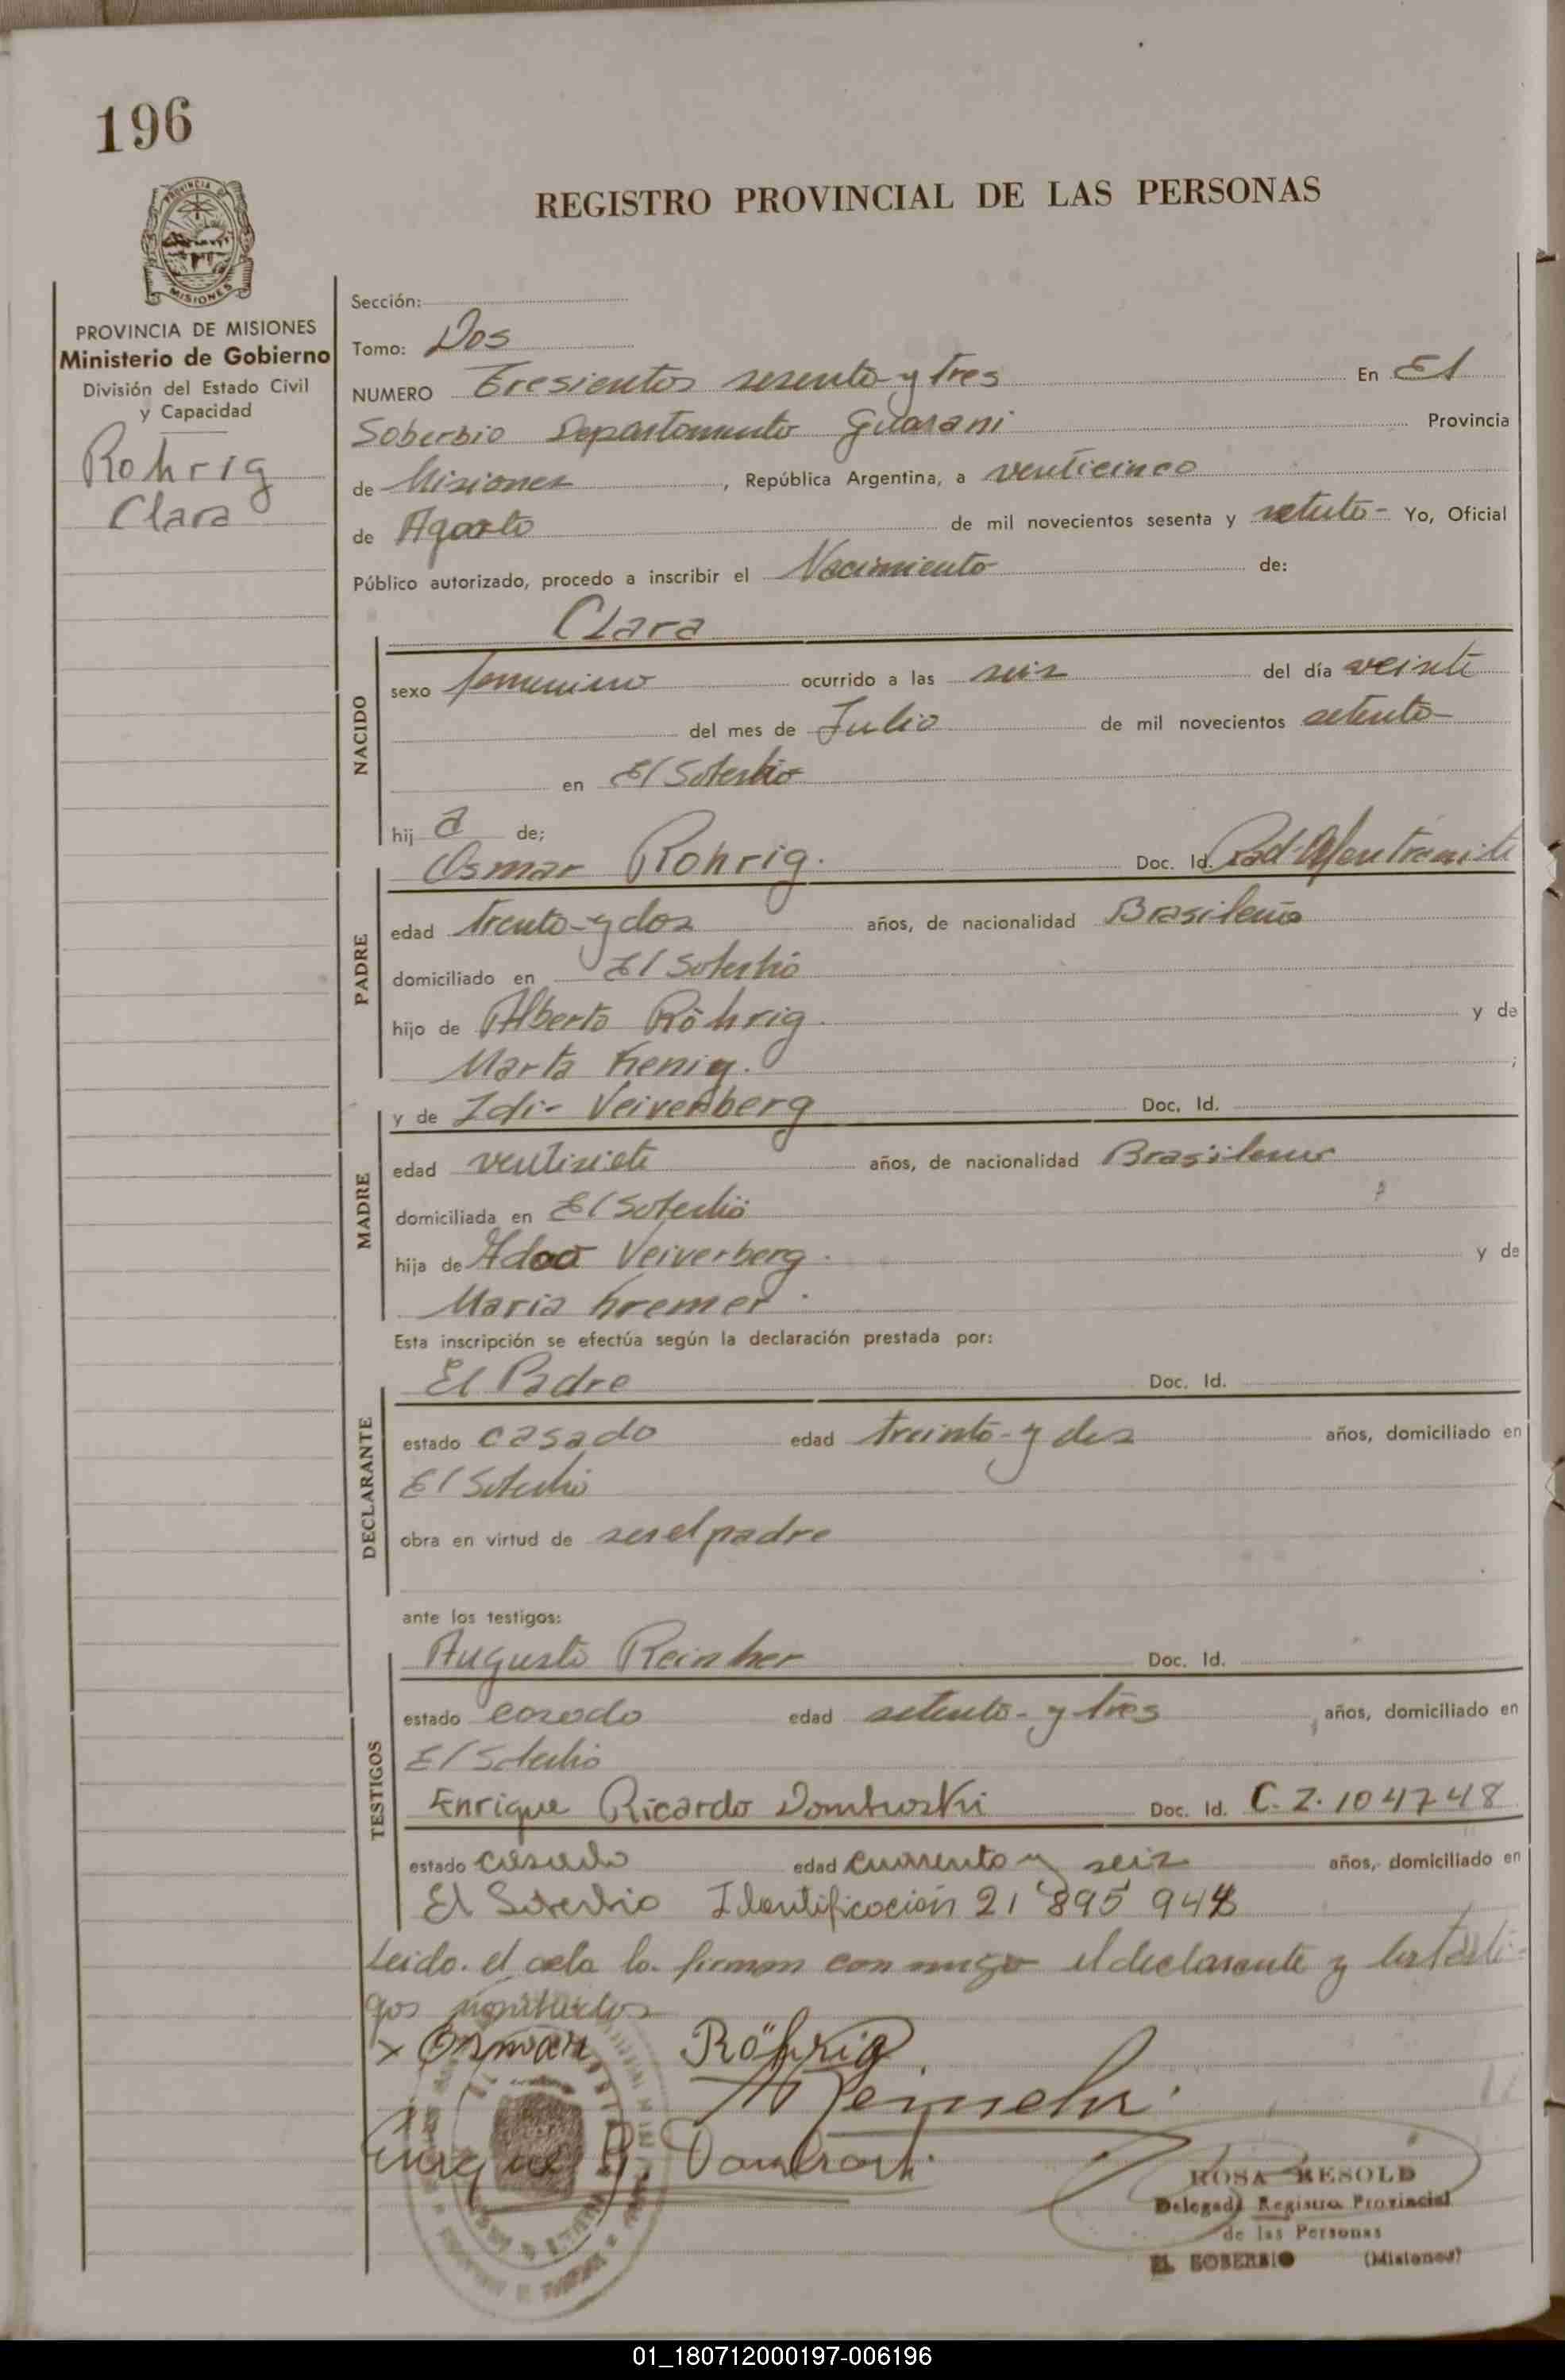 196
PROVINCIA DE
MISIONES
PROVINCIA DE MISIONES
Ministerio de Gobierno
División del Estado Civil
y Capacidad
Rohrig
Clara
REGISTRO PROVINCIAL DE LAS PERSONAS
Sección:
Tomo: Dos
NUMERO Tresientos sesenta y Tres En El
Soberbio Departamento Guarani Provincia
de Misiones, República Argentina, a venticinco
de Agosto de mil novecientos sesenta y setenta- Yo, Oficial
Público autorizado, procedo a inscribir el Nacimiento de:
NACIDO
Clara
sexo femenino ocurrido a las seis del día veinte
del mes de Julio de mil novecientos setenta
en El Soberbio
hij a de;
PADRE
Osmar Rohrig. Doc. Id.
edad trenta y dos años, de nacionalidad Brasileño
domiciliado en El Soberbio
hijo de Alberto Röhrig. y de
Marta Kenig. ;
MADRE
y de Idi- Veiverberg Doc. Id.
edad ventisiete años, de nacionalidad Brasilena
domiciliada en El Soberbio
hija de Adao Veiverberg. y de
Maria Kremer.
Esta inscripción se efectúa según la declaración prestada por:
DECLARANTE
El Padre Doc. Id.
estado casado edad treinta y dos años, domiciliado en
El Soberbio
obra en virtud de ser el padre
ante los testigos:
TESTIGOS
Augusto Reinher Doc. Id.
estado casado edad setenta y tres años, domiciliado en
El Soberbio
Enrique Ricardo Dombroski Doc. Id. C. I. 104748
estado casado edad cuarenta y seis años, domiciliado en
El Soberbio Identificación 21 895 944
Leida el acta la firman con migo el declarante y los testi-
gos
x Osmar Röhrig
Enrique R. Dombroski
ROSA RESOLD
Delegada Registro Provincial
de las Personas
EL SOBERBIO (Misiones)
01_180712000197-006196